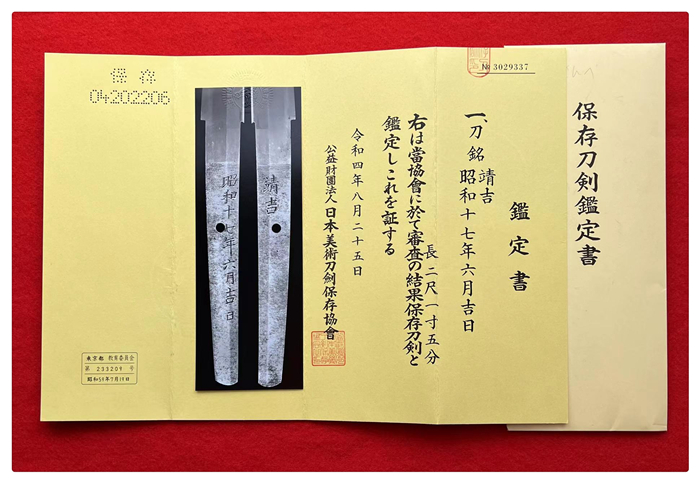 保存刀剣鑑定書
№ 3029337
鑑定書
一、刀 銘 靖吉
昭和十七年六月吉日
長 二尺一寸五分
右は當協會に於て審査の結果保存刀剣と
鑑定しこれを証する
令和四年八月二十五日
公益財團法人 日本美術刀劍保存協會
靖吉
昭和十七年六月吉日
保存
04202206
東京都 教育委員会
第 233209 号
昭和51年7月14日